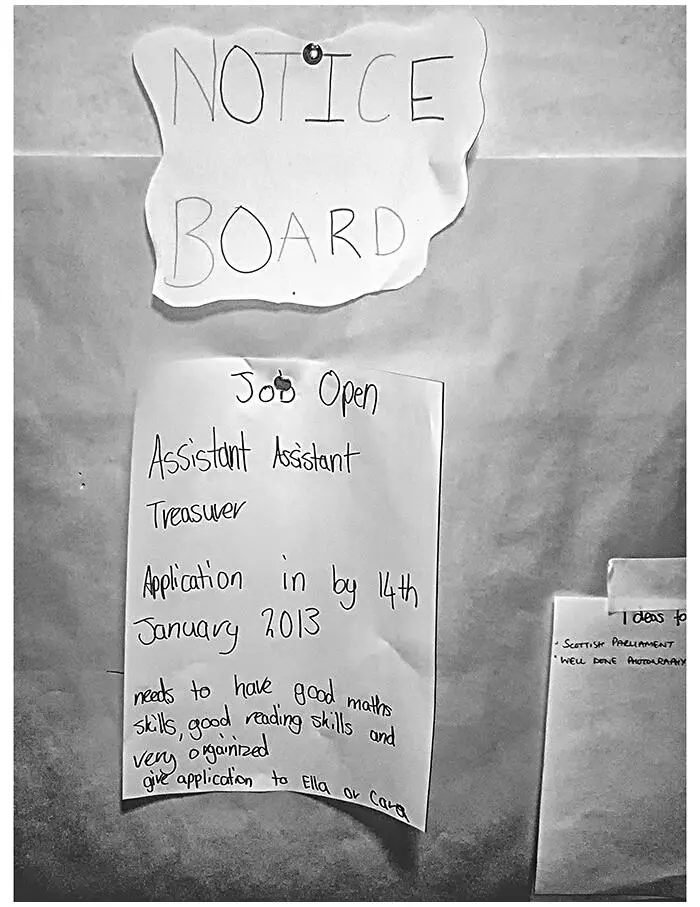 NOTICE
BOARD
Job Open
Assistant Assistant
Treasurer
Application in by 14th
January 2013
needs to have good maths
skills, good reading skills and
very orgainized
give application to Ella or Cara
Ideas to
- SCOTTISH PARLIAMENT
- WELL DONE PHOTOGRAPHY